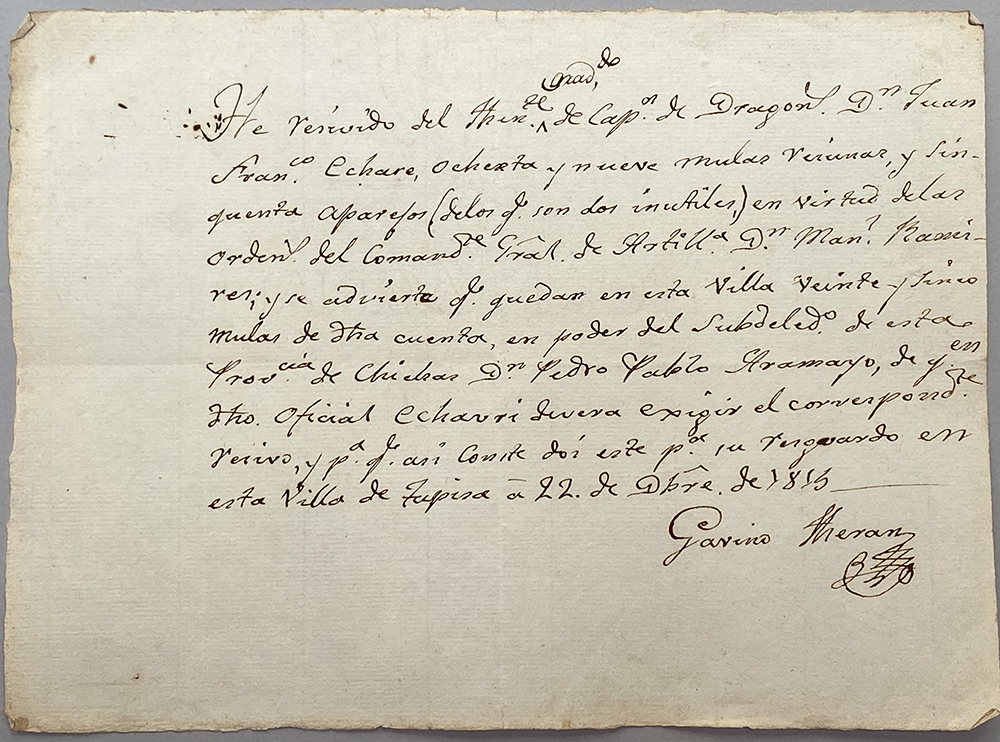 Grad.do
He resivido del Thente. de Capn. de Dragons. Dn. Juan
Franco. Echare, ochenta y nueve mulas resiunas, y sin-
quenta aparejos (delos qe. son dos inutiles,) en virtud delas
ordens. del Comandte. Gral. de Artilla. Dn. Manl. Rami-
res; y se advierte qe. quedan en esta Villa veinte y sinco
mulas de dha cuenta, en poder del Subdeledo. de esta
Provcia. de Chichas Dn. Pedro Pablo Aramayo, de yen
dho. oficial Echavri devera exigir el correspondte.
resivo, y pa. qe. asi conste doi este pa. su resguardo en
esta Villa de Tupisa â 22. de Dbre. de 1815
Gavino Theran